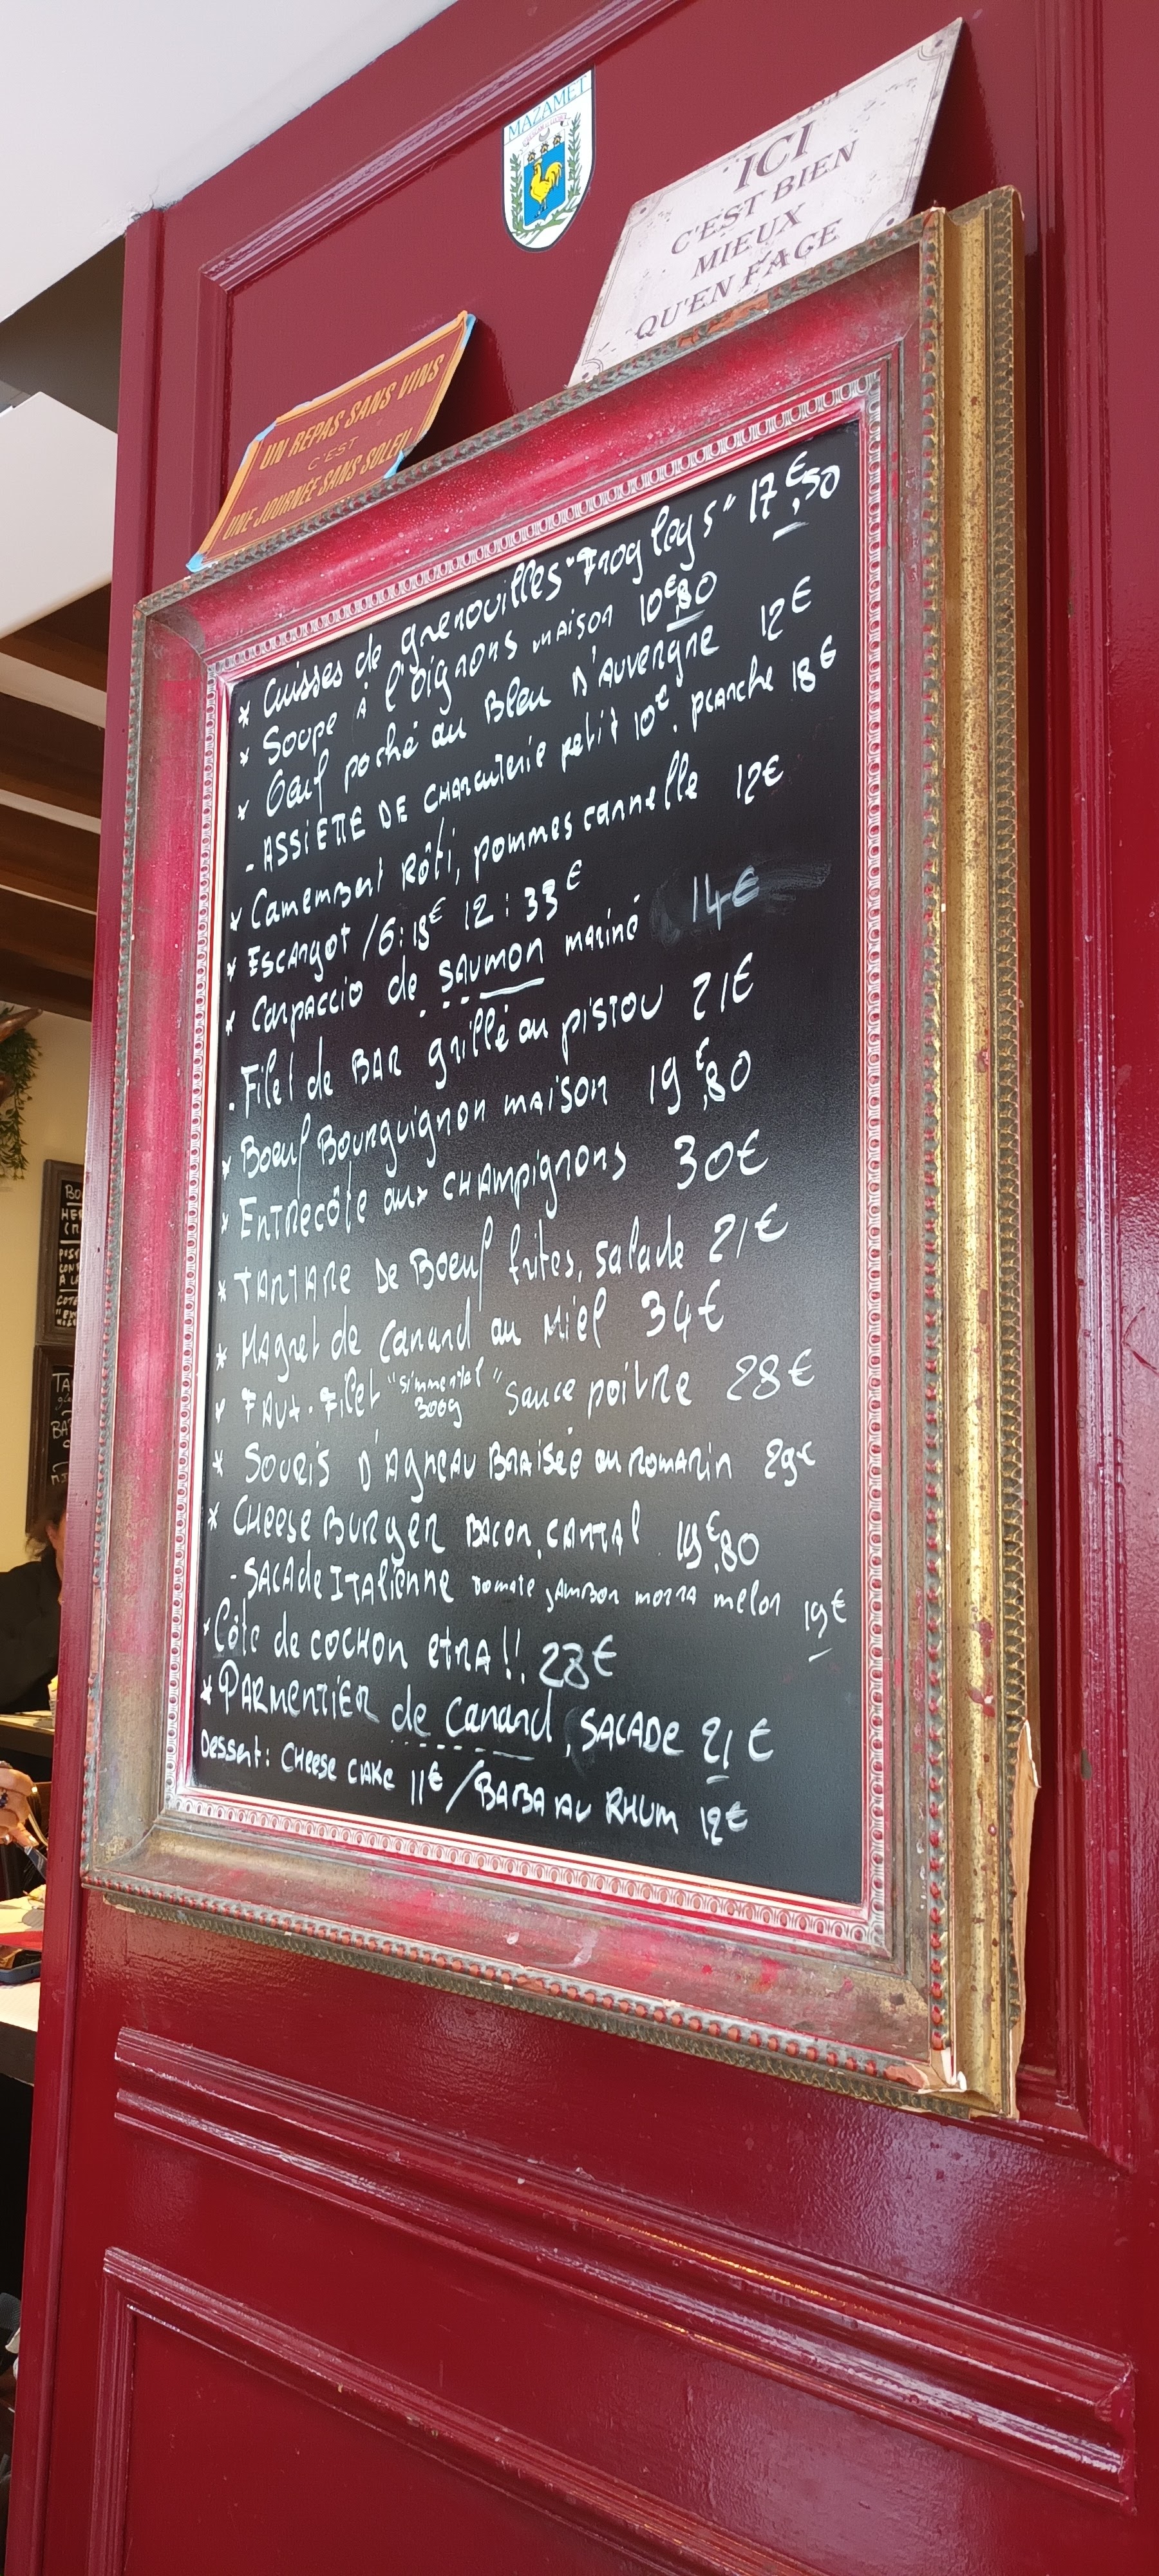 MAZAMET
ICI
C'EST BIEN
MIEUX
QU'EN FACE
UN REPAS SANS VINS
C'EST
UNE JOURNÉE SANS SOLEIL
* Cuisses de grenouilles "Frog legs" 17€,50
* Soupe à l'oignons maison 10€,80
* Oeuf poché au Bleu D'Auvergne 12€
- ASSIETTE DE CHARCUTERIE petit 10€. planche 18€
* Camembert Rôti, pommes cannelle 12€
* Escargot /6: 18€ 12: 33€
* Carpaccio de saumon mariné 14€
. Filet de BAR grillé au pistou 21€
* Boeuf Bourguignon maison 19€,80
* Entrecôte aux CHAMPignons 30€
* TARTARE De Boeuf frites, salade 21€
* Magret de Canard au Miel 34€
* FAUX-Filet "Simmental" 300g sauce poivre 28€
* SOURIS D'AGNEAU BRAISÉE au ROMARIN 29€
* CHEESE BURGER BACON, CANTAL 19€,80
- SALADE ITALienne Tomate JAMBON mozza melon 19€
* Côte de COCHON extra!! 28€
* PARMENTIER de Canard, SALADE 21€
Dessert: CHEESE CAKE 11€ / BABA AU RHUM 12€